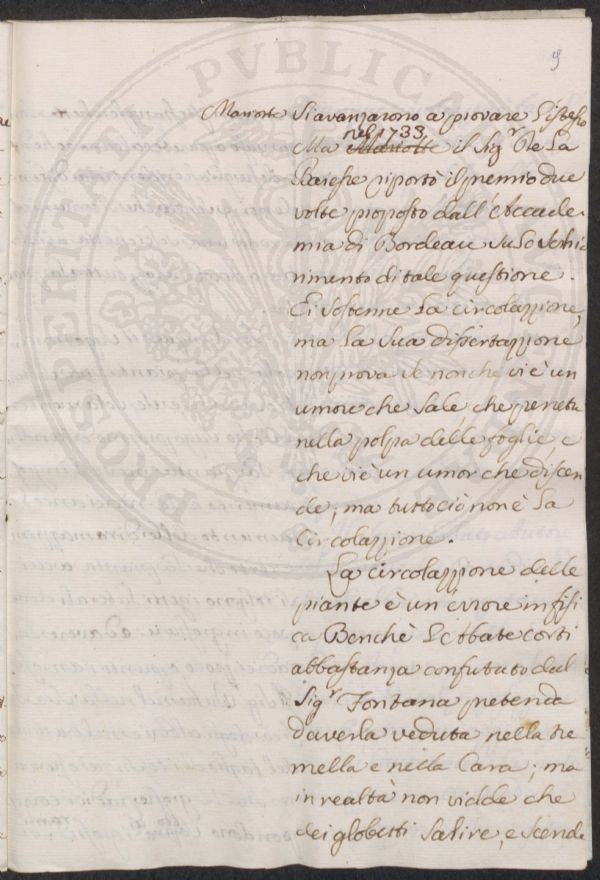 9
Mariotte si avanzarono a provare l'istesso
nel 1733
Ma Mariotte il Sigr De La
Baisse riportò il premio due
volte proposto dall'Accade-
mia di Bordeau sulo schia
rimento di tale questione.
Ei sostenne la circolazzione,
ma la sua dissertazzione
non prova se non che vi è un
umore che sale che penetra
nella polpa delle foglie, e
che vi è un umor che discen
de; ma tutto ciò non è la
Circolazzione.
La circolazzione delle
piante è un errore in fisi
ca Benchè L'Abbate Corti
abbastanza confutato dal
Sigr Fontana pretenda
d'averla veduta nella tre
mella e nella Cara; ma
in realtà non vidde che
dei globetti salire, e scende